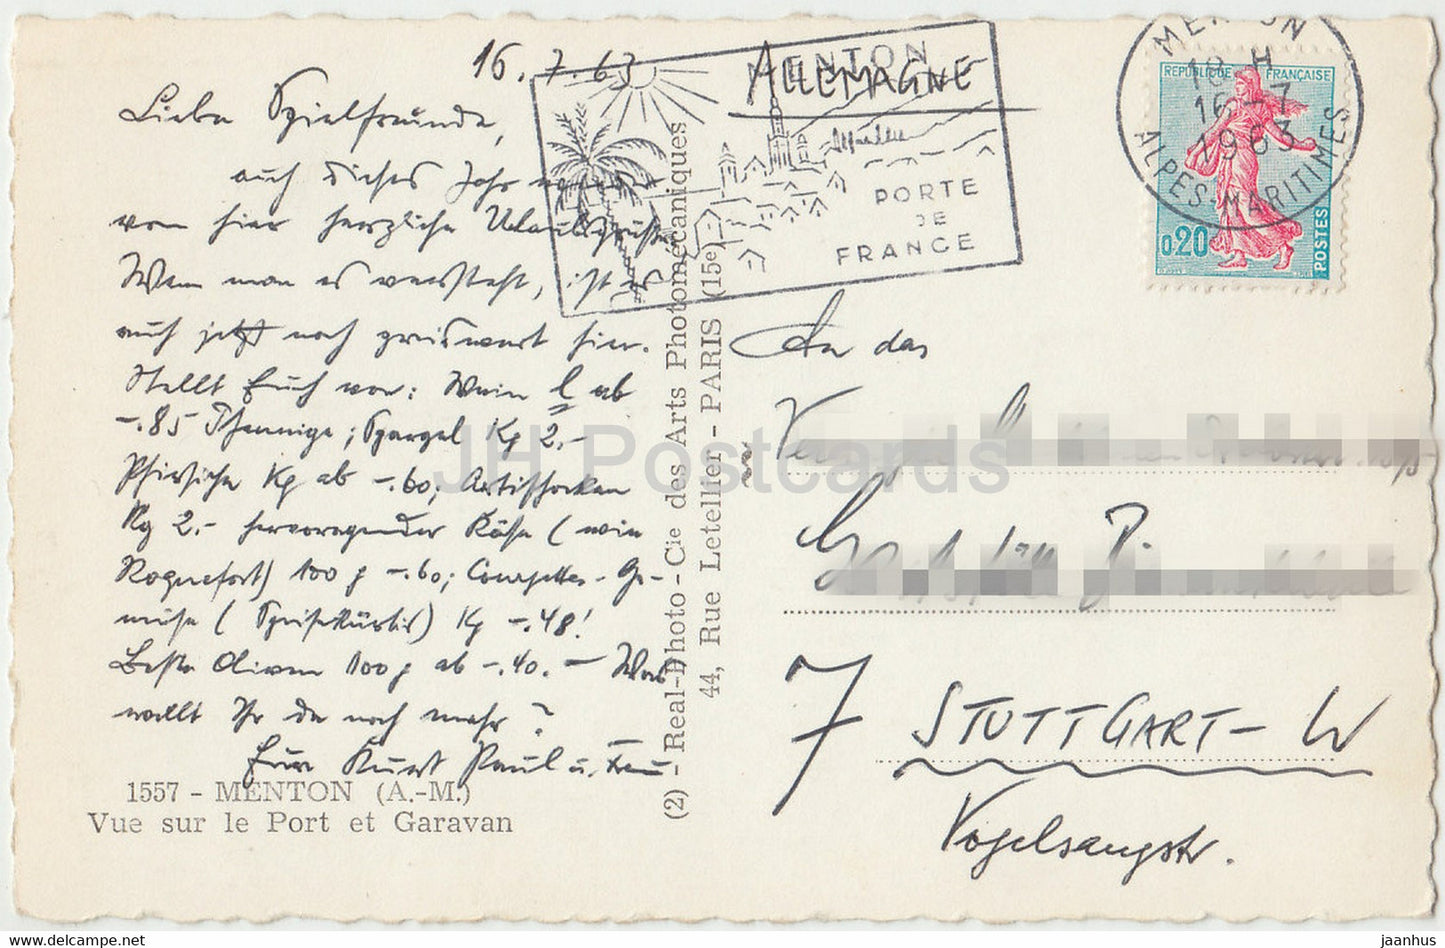 16.7.63
Liebe Spielfreunde,
auch dieses Jahr
von hier herzliche Urlaubsgrüße
Wenn man es versteht, ist es
auch jetzt noch preiswert hier.
Stellt Euch vor: Wein l ab
-.85 Pfennige; Spargel Kg 2.-
Pfirsiche Kg ab -.60; Artischocken
Kg 2.- hervorragender Käse (wie
Roquefort) 100 g -.60; Courgettes-Ge-
müse (Speisekürbis) Kg -.48!
Beste Oliven 100 g ab -.40. - Was
wollt Ihr da noch mehr?
Euer Kurt Paul u. Frau
1557 - MENTON (A.-M.)
Vue sur le Port et Garavan
(2) - Real-Photo - Cie des Arts Photomécaniques
44, Rue Letellier - PARIS (15e)
MENTON
PORTE
DE
FRANCE
ALLEMAGNE
MENTON
18 H
16 - 7
1963
ALPES-MARITIMES
REPUBLIQUE FRANÇAISE
0,20
POSTES
An das
7 STUTTGART - W
Vogelsangstr.
JH Postcards
www.hippostcard.com
jaanhus